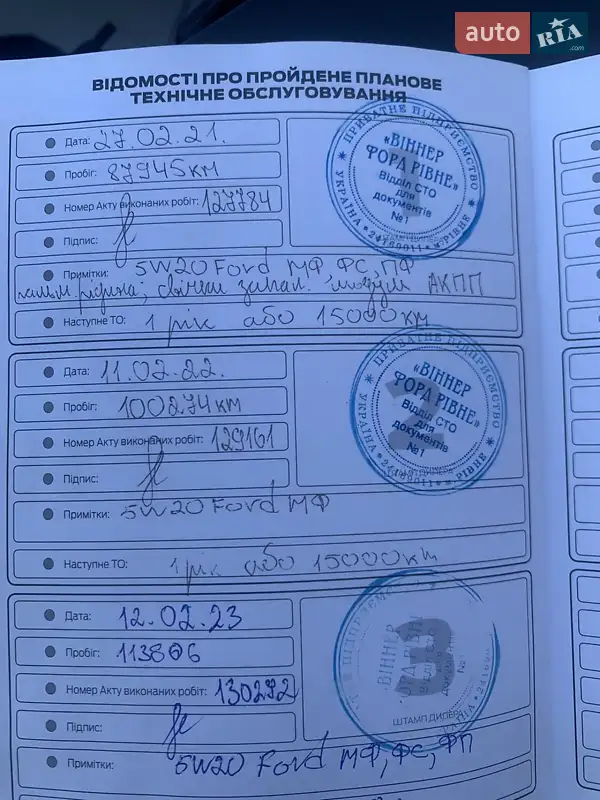 auto RIA .com
ВІДОМОСТІ ПРО ПРОЙДЕНЕ ПЛАНОВЕ
ТЕХНІЧНЕ ОБСЛУГОВУВАННЯ
Дата: 27.02.21.
Пробіг: 87945км
Номер Акту виконаних робіт: 127784
Підпис:
Примітки: 5W20 Ford МФ, ФС, ПФ
свічки запал. АКПП
Наступне ТО: 1 рік або 15000км
ПРИВАТНЕ ПІДПРИЄМСТВО
«ВІННЕР
ФОРД РІВНЕ»
Відділ СТО
для
документів
№1
УКРАЇНА * 24169011 * м.РІВНЕ
Дата: 11.02.22.
Пробіг: 100274км
Номер Акту виконаних робіт: 129161
Підпис:
Примітки: 5W20 Ford МФ
Наступне ТО: 1 рік або 15000км
ПРИВАТНЕ ПІДПРИЄМСТВО
«ВІННЕР
ФОРД РІВНЕ»
Відділ СТО
для
документів
№1
УКРАЇНА * 24169011 * м.РІВНЕ
Дата: 12.02.23
Пробіг: 113806
Номер Акту виконаних робіт: 130292
Підпис:
Примітки: 5W20 Ford МФ, ФС, ФП
ВІННЕР
3
ШТАМП ДИЛЕРА